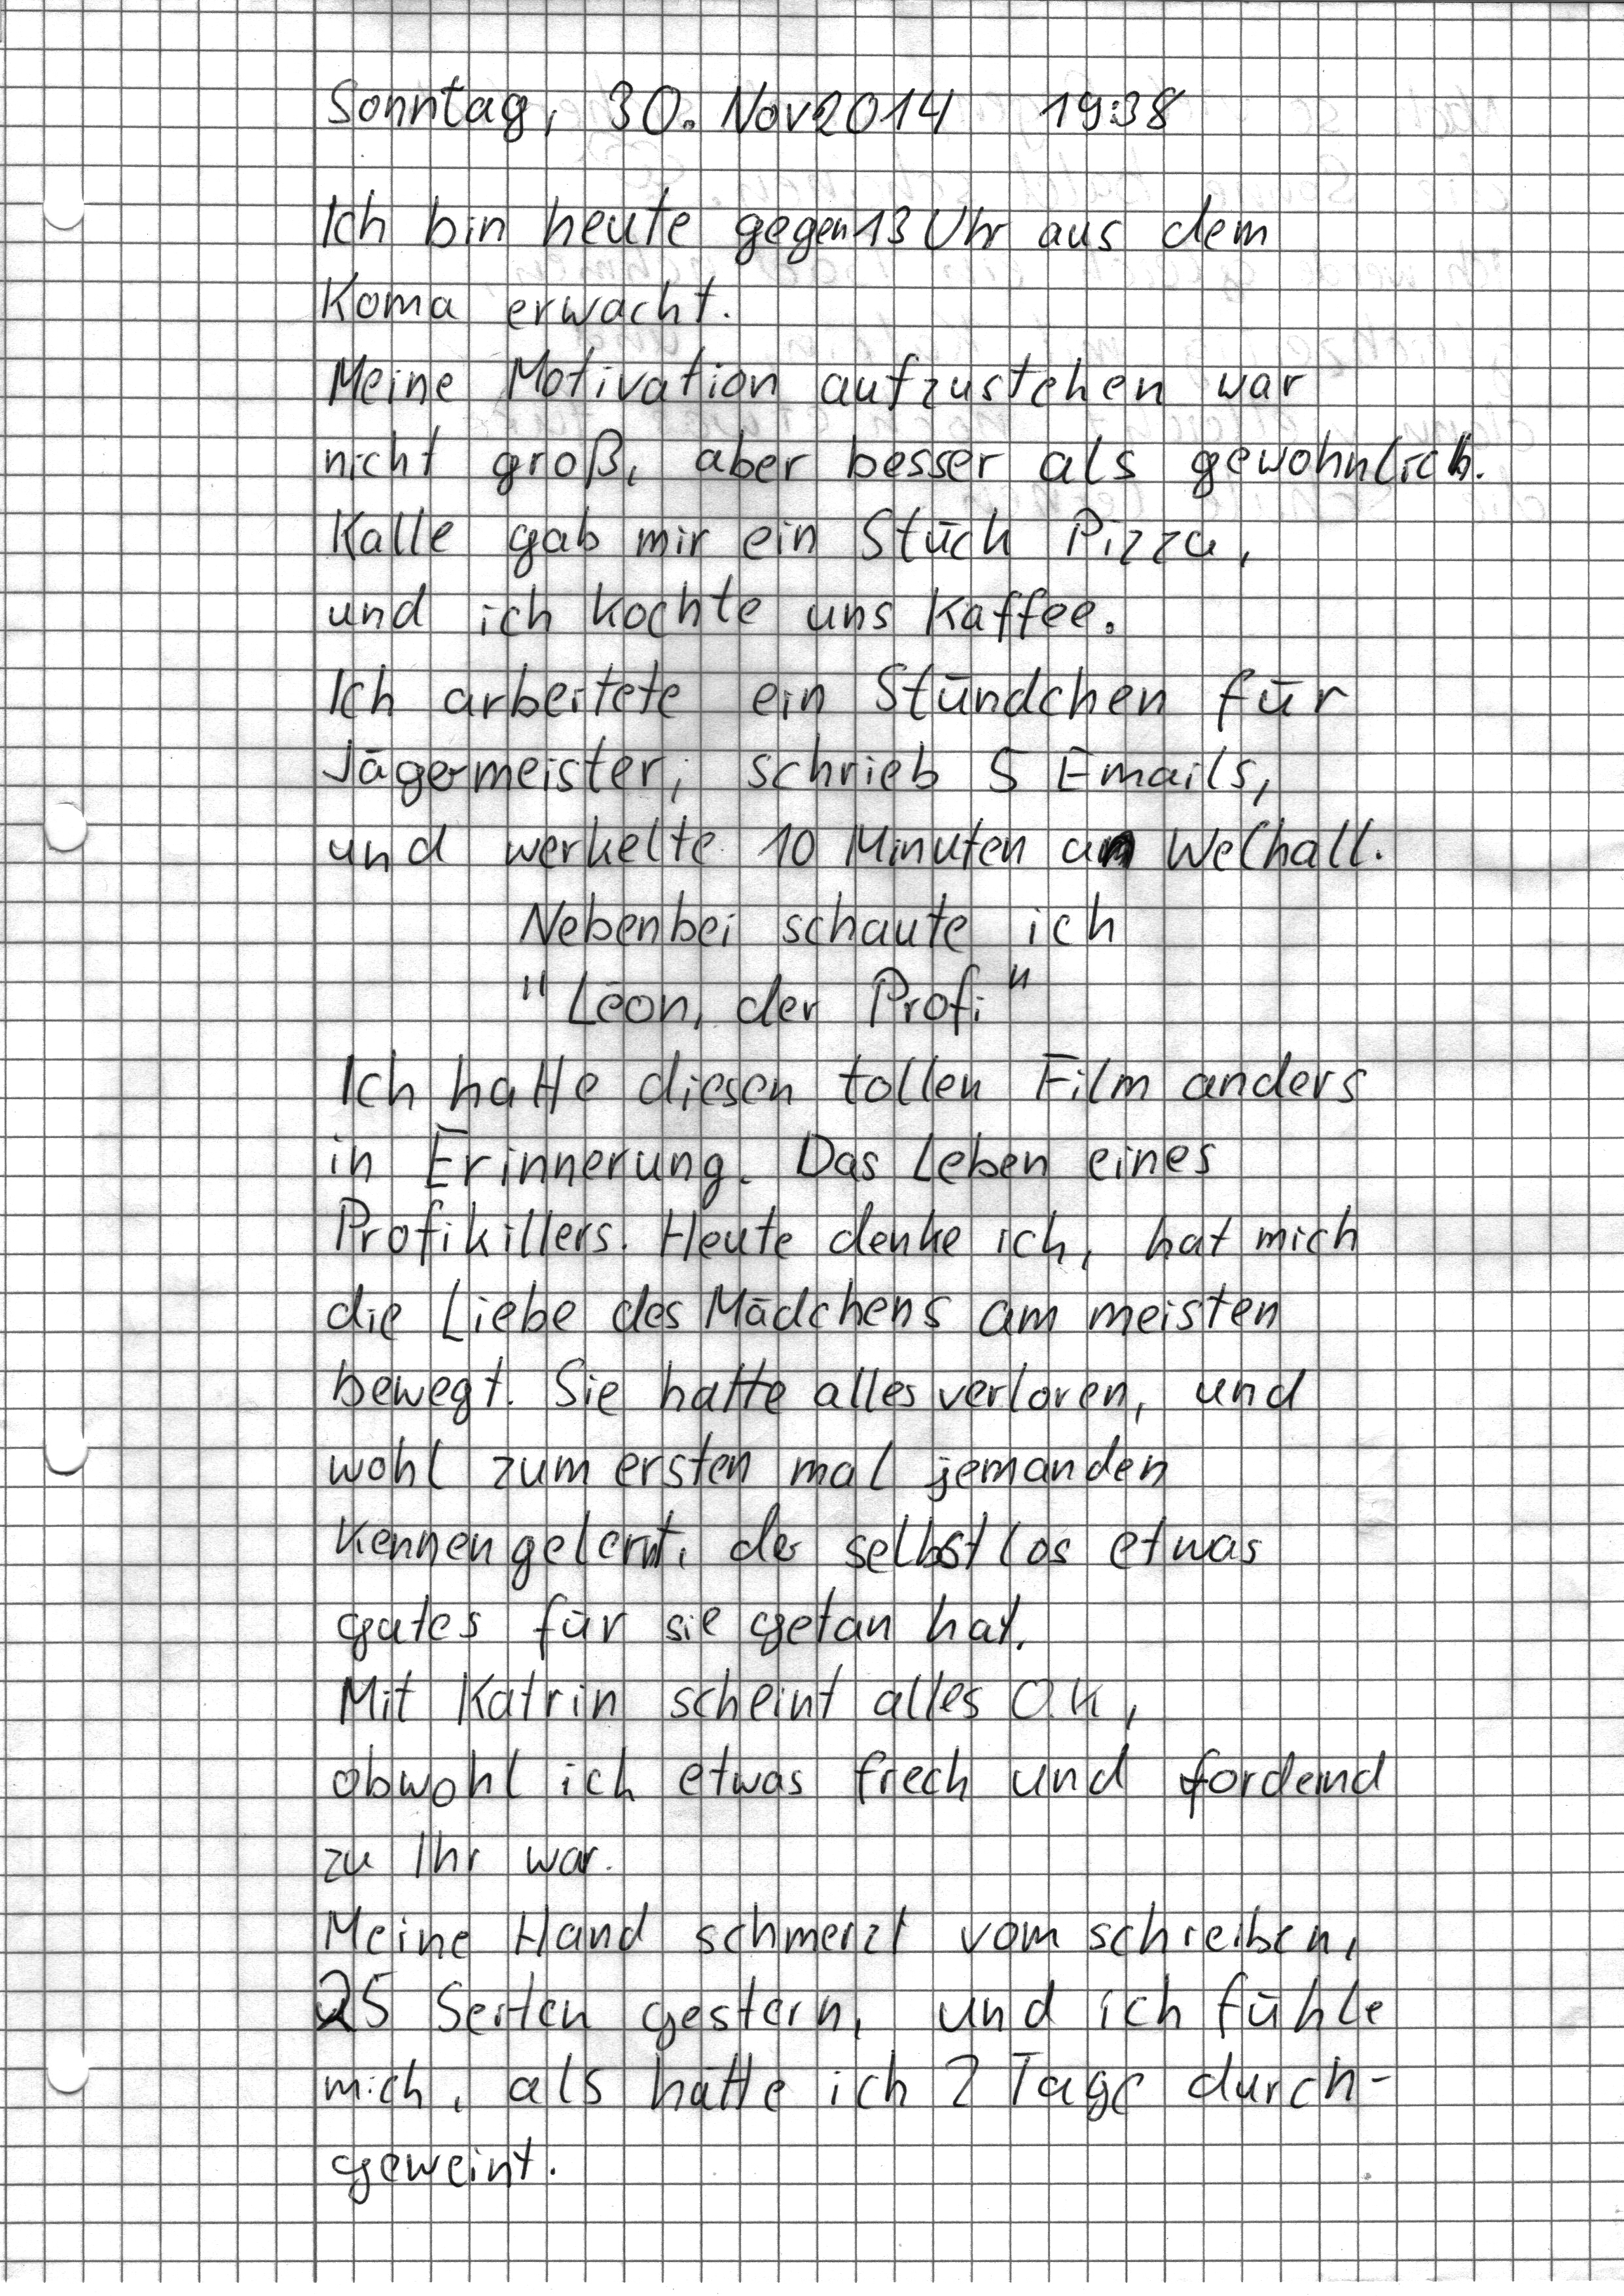 Sonntag, 30. Nov 2014 19:38
Ich bin heute gegen 13 Uhr aus dem
Koma erwacht.
Meine Motivation aufzustehen war
nicht groß, aber besser als gewohnlich.
Kalle gab mir ein Stück Pizza,
und ich kochte uns Kaffee.
Ich arbeitete ein Stündchen für
Jägermeister, schrieb 5 Emails,
und werkelte 10 Minuten an Welhall.
Nebenbei schaute ich
"Léon, der Profi"
Ich hatte diesen tollen Film anders
in Erinnerung. Das Leben eines
Profikillers. Heute denke ich, hat mich
die Liebe des Mädchens am meisten
bewegt. Sie hatte alles verloren, und
wohl zum ersten mal jemanden
kennengelernt, der selbstlos etwas
gutes für sie getan hat.
Mit Katrin scheint alles O.K,
obwohl ich etwas frech und fordernd
zu Ihr war.
Meine Hand schmerzt vom schreiben,
25 Seiten gestern, und ich fühle
mich, als hätte ich 2 Tage durch-
geweint.